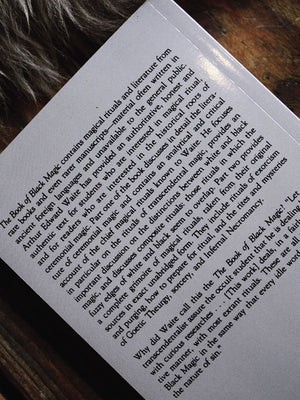 The Book of Black Magic contains magical rituals and literature from
rare books and even rare manuscripts—material often written in
ancient foreign languages and unavailable to the general public.
Arthur Edward Waite provides an authoritative, honest and
authentic text for students who are interested in magical ritual,
and for readers who are interested in the historical roots of
ceremonial magic. Part one of the book discusses in detail the litera-
ture of ceremonial magic known to Waite.
account of the rituals of transcendental magic, provides an
in particular on the distinctions between white and black
important discussion on composite rituals, those rituals in which the
fuzzy edges of white and black seem to overlap.
a complete grimoire of magical rituals, taken from their original
sources in part two. They include rituals of exorcisms
and purging, how to prepare for rituals, and the rites and mysteries
of Goetic Theurgy, sorcery, and Infernal Necromancy.
Why did Waite call this the The Book of Black Magic? "Let
transcendentalist assure the occult student that he is dealing
with curious researches . . . [This work] deals, in a
tive manner, with most extant rituals.
Black Magic in the same way that every idle word
the nature of sin.